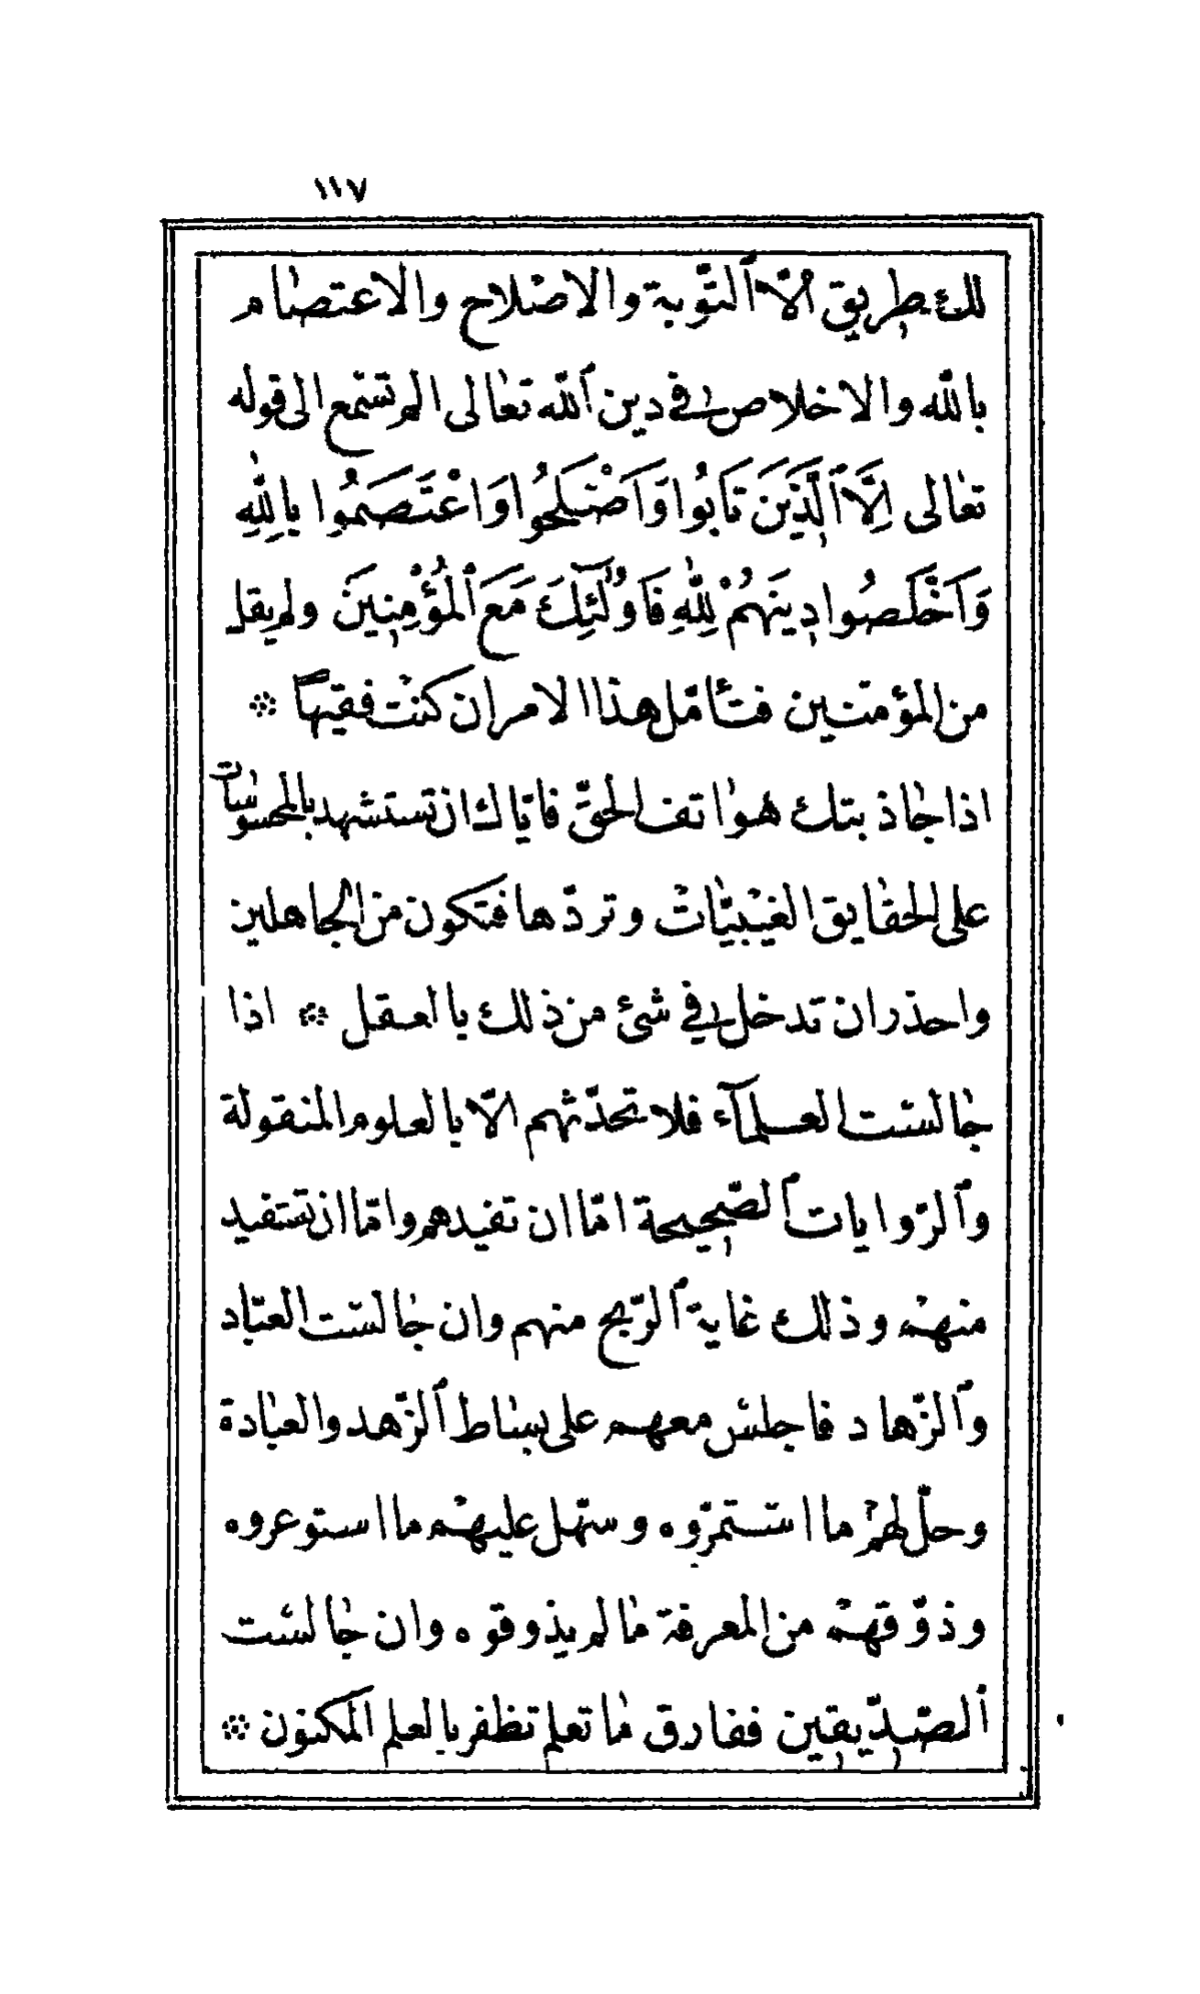 ١١٧
لك طريق الّا ٱلتّوبة والاصْلاح والاعتصام
بالله والاخلاص فى دين ٱلله تعالى الم تسْمع الى قوله
تعالى اِلَّا ٱلَّذٖينَ تَابُوا وَاَصْلَحُوا وَاعْتَصَمُوا بِاللّٰهِ
وَاَخْلَصُوا دٖينَهُمْ لِلّٰهِ فَاُولٰٓئِكَ مَعَ ٱلْمُؤْمِنٖينَ ولم يقل
من المؤمنين فتأمّل هذا الامر ان كنْت فقيهًا ۞
اذا جاذبتك هواتف الحقّ فايّاك ان تستشهد بالمحسوسات
على الحقايق الغيْبيّات وتردّها فتكون من الجاهلين
واحذر ان تدخل فى شئ من ذلك بالعقل ۞ اذا
جالسْت العلمآء فلا تحدّثهم الّا بالعلوم المنقولة
وٱلرّوايات ٱلصّحيحة امّا ان تفيدهم وامّا ان تستفيد
منهمْ وذلك غاية ٱلرّبح منهم وان جالسْت العبّاد
وٱلزّهاد فاجلسْ معهم على بساط ٱلزّهد والعبادة
وحلّ لهمْ ما استمرّوه وسهّل عليهمْ ما استوعروه
وذوّقهمْ من المعرفة ما لم يذوقوه وان جالسْت
ٱلصّدّيقين ففارق ما تعلم تظفر بالعلم المكنون ۞